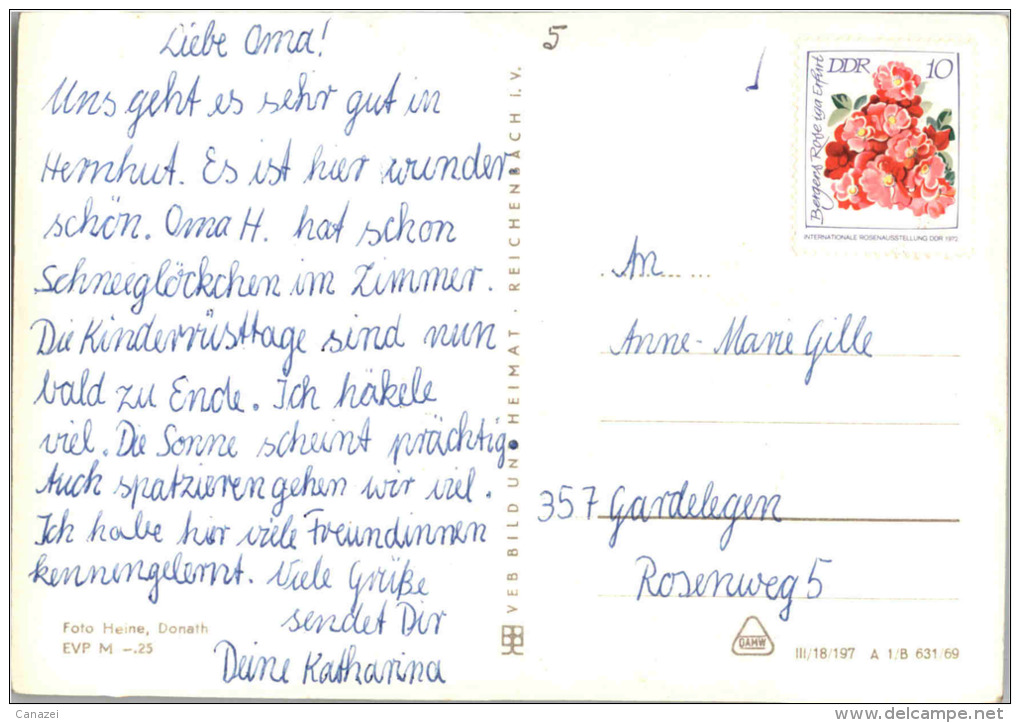 Liebe Oma!
Uns geht es sehr gut in
Herrnhut. Es ist hier wunder
schön. Oma H. hat schon
Schneeglöckchen im Zimmer.
Die Kinderrüsttage sind nun
bald zu Ende. Ich häkele
viel. Die Sonne scheint prächtig.
Auch spatzieren gehen wir viel.
Ich habe hier viele Freundinnen
kennengelernt. Viele Grüße
sendet Dir
Deine Katharina
Foto Heine, Donath
EVP M –.25
VEB BILD UND HEIMAT · REICHENBACH I. V.
5
DDR 10
Bergers Rose iga Erfurt
INTERNATIONALE ROSENAUSSTELLUNG DDR 1972
An
Anne-Marie Gille
357 Gardelegen
Rosenweg 5
DAMW
III/18/197 A 1/B 631/69
Canazei
www.delcampe.net